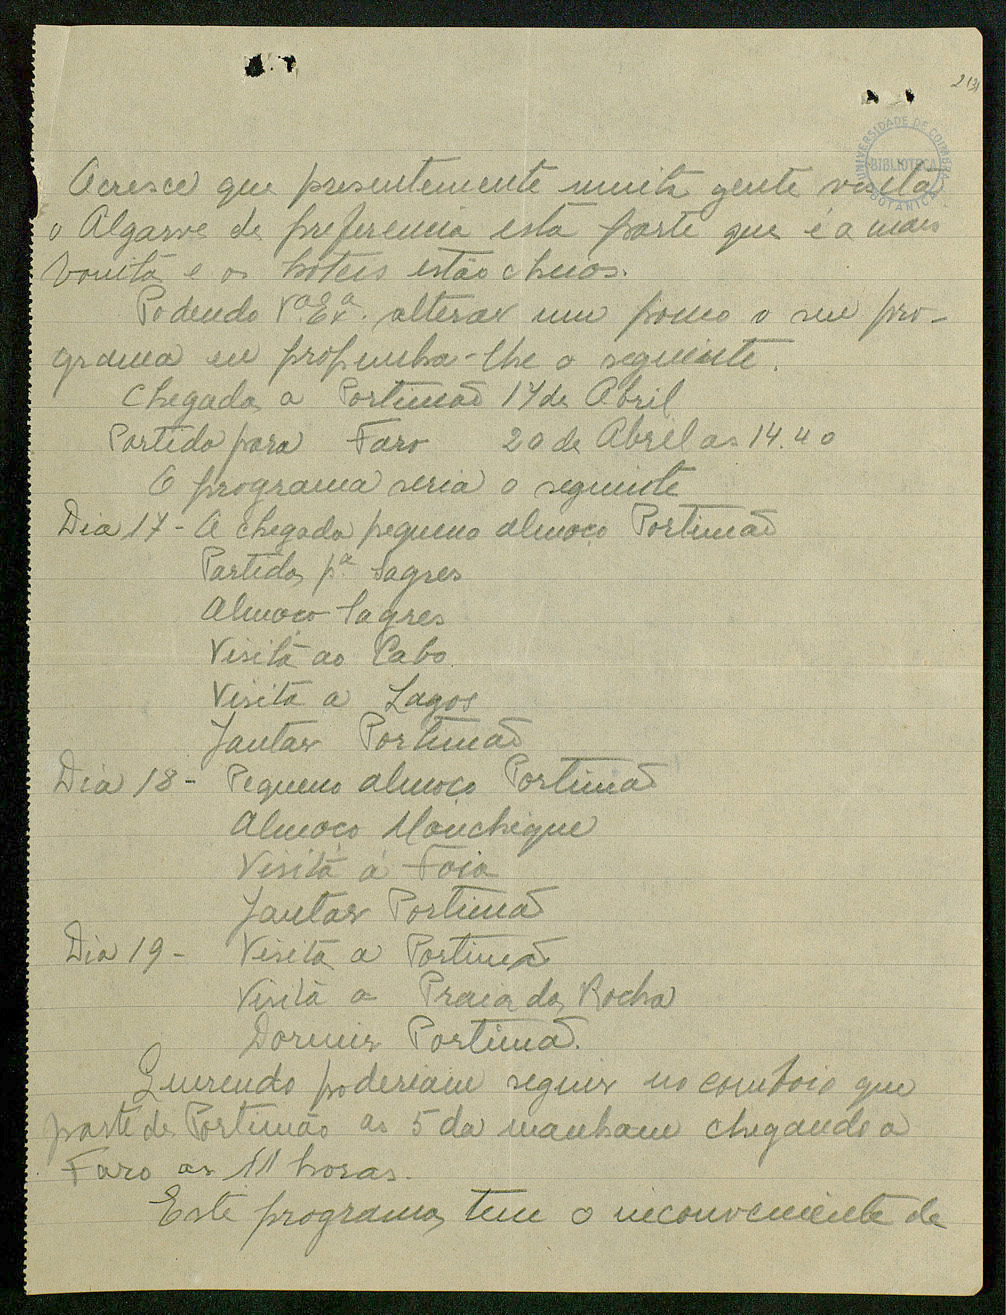 UNIVERSIDADE DE COIMBRA
BIBLIOTECA
BOTANICA
Acresce que presentemente muita gente visita
o Algarve de preferencia esta parte que é a mais
bonita e os hoteis estão cheios.
Podendo V.ª Ex.ª alterar um pouco o seu pro-
grama eu propunha-lhe o seguinte.
Chegada a Portimão 17 de Abril
Partida para Faro 20 de Abril as 14.40
O programa seria o seguinte
Dia 17 - A chegada pequeno almoço Portimão
Partida pª Sagres
Almoço Sagres
Visita ao Cabo
Visita a Lagos
Jantar Portimão
Dia 18 - Pequeno almoço Portimão
Almoço Monchique
Visita á Foia
Jantar Portimão
Dia 19 - Visita a Portimão
Visita a Praia da Rocha
Dormir Portimão.
Querendo poderiam seguir no comboio que
parte de Portimão as 5 da manham chegando a
Faro as 11 horas.
Este programa tem o inconveniente de